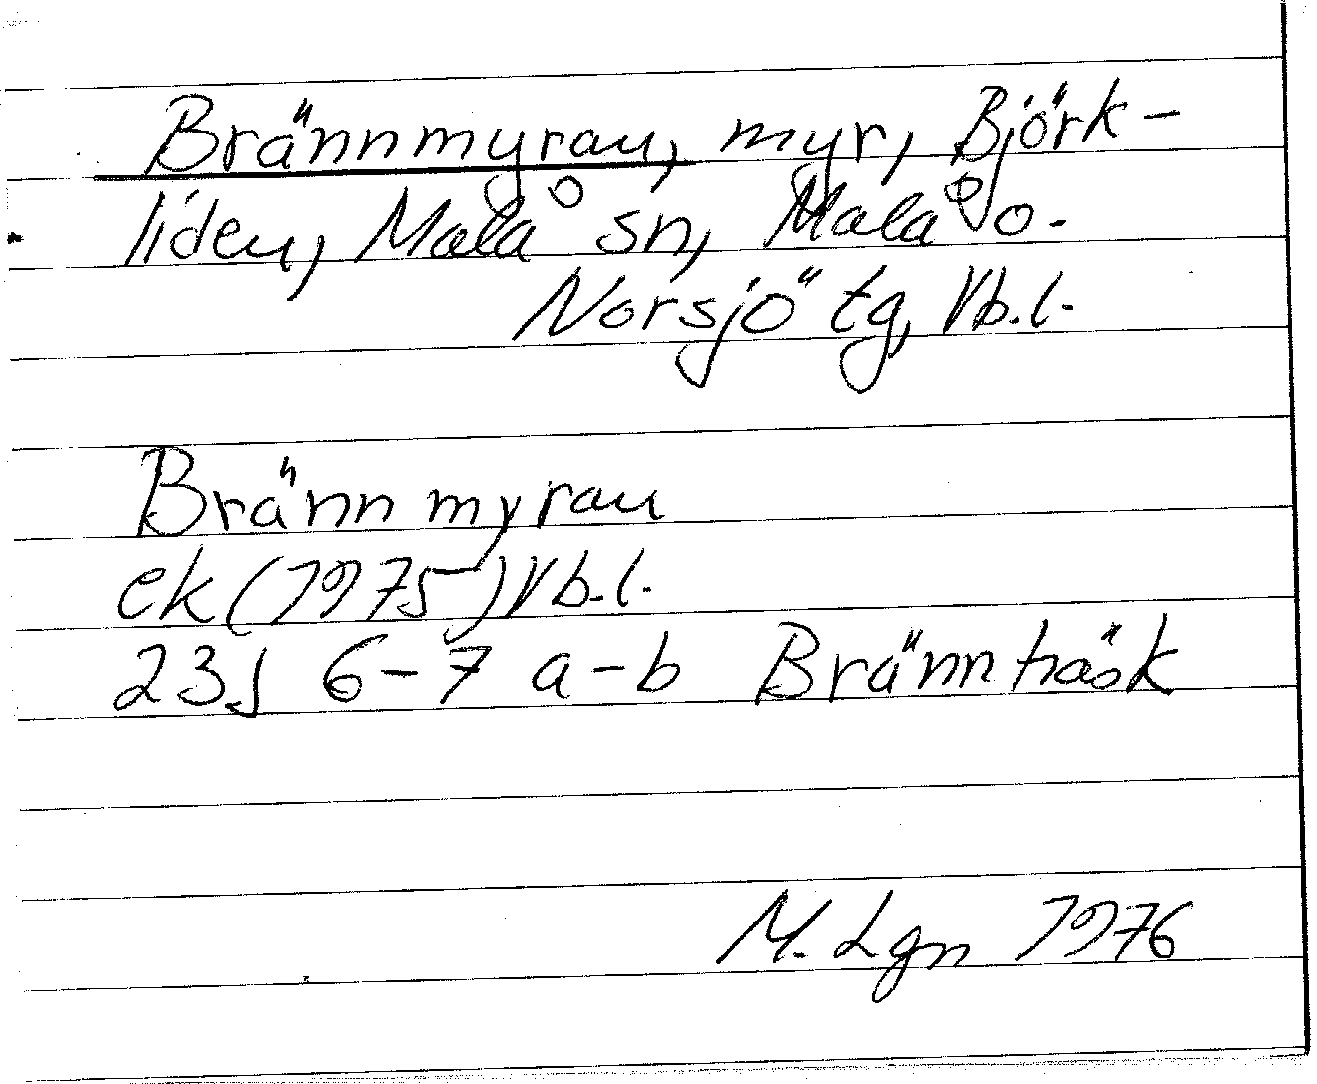 Brännmyran, myr, Björk-
liden, Malå sn, Malå o.
Norsjö tg, Vb.l.
Brännmyran
ek (1975) Vb.l.
23J 6-7 a-b Brännträsk
M. Lgn 1976